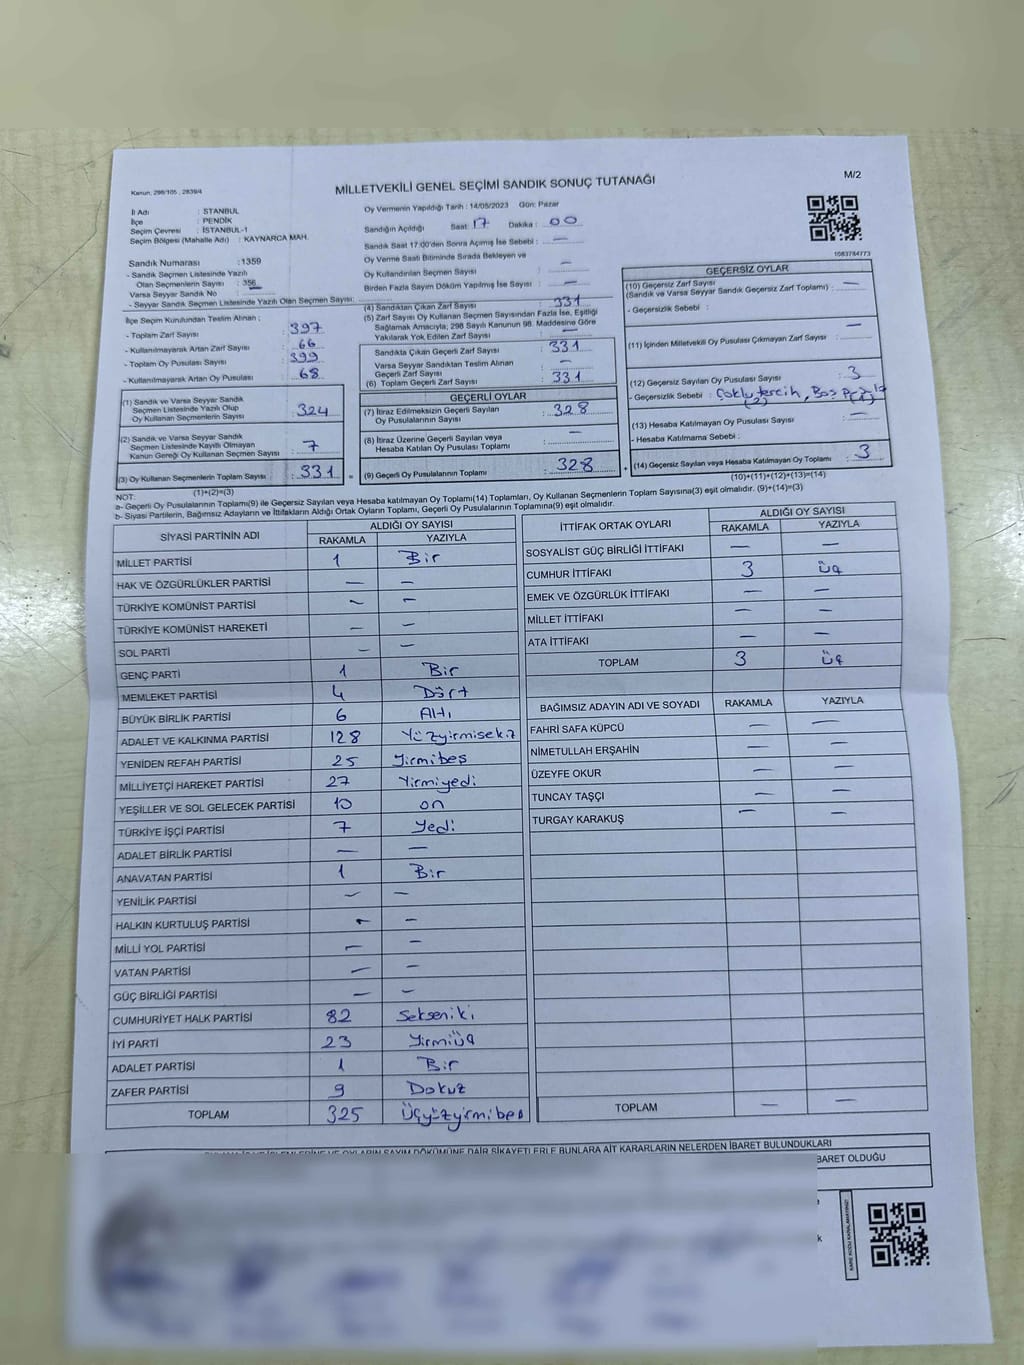 Kanun: 298/105 , 2839/4
MİLLETVEKİLİ GENEL SEÇİMİ SANDIK SONUÇ TUTANAĞI
M/2
İl Adı : STANBUL
İlçe : PENDİK
Seçim Çevresi : İSTANBUL-1
Seçim Bölgesi (Mahalle Adı) : KAYNARCA MAH.
Sandık Numarası :1359
- Sandık Seçmen Listesinde Yazılı
Olan Seçmenlerin Sayısı :356
Varsa Seyyar Sandık No :
- Seyyar Sandık Seçmen Listesinde Yazılı Olan Seçmen Sayısı:
Oy Vermenin Yapıldığı Tarih : 14/05/2023 Gün: Pazar
Sandığın Açıldığı Saat: 17 Dakika : 00
Sandık Saat 17:00'den Sonra Açımış İse Sebebi : —
Oy Verme Saati Bitiminde Sırada Bekleyen ve
Oy Kullandırılan Seçmen Sayısı : —
Birden Fazla Sayım Döküm Yapılmış İse Sayısı : —
1083784773
İlçe Seçim Kurulundan Teslim Alınan ;
- Toplam Zarf Sayısı : 397
- Kullanılmayarak Artan Zarf Sayısı : 66
- Toplam Oy Pusulası Sayısı : 399
- Kullanılmayarak Artan Oy Pusulası : 68
(1) Sandık ve Varsa Seyyar Sandık
Seçmen Listesinde Yazılı Olup
Oy Kullanan Seçmenlerin Sayısı : 324
(2) Sandık ve Varsa Seyyar Sandık
Seçmen Listesinde Kayıtlı Olmayan
Kanun Gereği Oy Kullanan Seçmen Sayısı : 7
(3) Oy Kullanan Seçmenlerin Toplam Sayısı : 331 =
(1)+(2)=(3)
(4) Sandıktan Çıkan Zarf Sayısı : 331
(5) Zarf Sayısı Oy Kullanan Seçmen Sayısından Fazla İse, Eşitliği
Sağlamak Amacıyla; 298 Sayılı Kanunun 98. Maddesine Göre
Yakılarak Yok Edilen Zarf Sayısı : —
Sandıkta Çıkan Geçerli Zarf Sayısı : 331
Varsa Seyyar Sandıktan Teslim Alınan
Geçerli Zarf Sayısı : —
(6) Toplam Geçerli Zarf Sayısı : 331
GEÇERLİ OYLAR
(7) İtiraz Edilmeksizin Geçerli Sayılan
Oy Pusulalarının Sayısı : 328
(8) İtiraz Üzerine Geçerli Sayılan veya
Hesaba Katılan Oy Pusulası Toplamı : —
(9) Geçerli Oy Pusulalarının Toplamı : 328 +
GEÇERSİZ OYLAR
(10) Geçersiz Zarf Sayısı
(Sandık ve Varsa Seyyar Sandık Geçersiz Zarf Toplamı) : —
- Geçersizlik Sebebi :
(11) İçinden Milletvekili Oy Pusulası Çıkmayan Zarf Sayısı : —
(12) Geçersiz Sayılan Oy Pusulası Sayısı : 3
- Geçersizlik Sebebi : Çoklu tercih, Boş
(2) (1)
(13) Hesaba Katılmayan Oy Pusulası Sayısı : —
- Hesaba Katılmama Sebebi :
(14) Geçersiz Sayılan veya Hesaba Katılmayan Oy Toplamı : 3
(10)+(11)+(12)+(13)=(14)
NOT:
a- Geçerli Oy Pusulalarının Toplamı(9) ile Geçersiz Sayılan veya Hesaba katılmayan Oy Toplamı(14) Toplamları, Oy Kullanan Seçmenlerin Toplam Sayısına(3) eşit olmalıdır. (9)+(14)=(3)
b- Siyasi Partilerin, Bağımsız Adayların ve İttifakların Aldığı Ortak Oyların Toplamı, Geçerli Oy Pusulalarının Toplamına(9) eşit olmalıdır.
SİYASİ PARTİNİN ADI ALDIĞI OY SAYISI
RAKAMLA YAZIYLA
MİLLET PARTİSİ 1 Bir
HAK VE ÖZGÜRLÜKLER PARTİSİ — —
TÜRKİYE KOMÜNİST PARTİSİ — —
TÜRKİYE KOMÜNİST HAREKETİ — —
SOL PARTİ — —
GENÇ PARTİ 1 Bir
MEMLEKET PARTİSİ 4 Dört
BÜYÜK BİRLİK PARTİSİ 6 Altı
ADALET VE KALKINMA PARTİSİ 128 Yüzyirmisekiz
YENİDEN REFAH PARTİSİ 25 Yirmibeş
MİLLİYETÇİ HAREKET PARTİSİ 27 Yirmiyedi
YEŞİLLER VE SOL GELECEK PARTİSİ 10 on
TÜRKİYE İŞÇİ PARTİSİ 7 Yedi
ADALET BİRLİK PARTİSİ — —
ANAVATAN PARTİSİ 1 Bir
YENİLİK PARTİSİ — —
HALKIN KURTULUŞ PARTİSİ — —
MİLLİ YOL PARTİSİ — —
VATAN PARTİSİ — —
GÜÇ BİRLİĞİ PARTİSİ — —
CUMHURİYET HALK PARTİSİ 82 Sekseniki
İYİ PARTİ 23 Yirmiüç
ADALET PARTİSİ 1 Bir
ZAFER PARTİSİ 9 Dokuz
TOPLAM 325 Üçyüzyirmibeş
İTTİFAK ORTAK OYLARI ALDIĞI OY SAYISI
RAKAMLA YAZIYLA
SOSYALİST GÜÇ BİRLİĞİ İTTİFAKI — —
CUMHUR İTTİFAKI 3 üç
EMEK VE ÖZGÜRLÜK İTTİFAKI — —
MİLLET İTTİFAKI — —
ATA İTTİFAKI — —
TOPLAM 3 üç
BAĞIMSIZ ADAYIN ADI VE SOYADI RAKAMLA YAZIYLA
FAHRİ SAFA KÜPCÜ — —
NİMETULLAH ERŞAHİN — —
ÜZEYFE OKUR — —
TUNCAY TAŞÇI — —
TURGAY KARAKUŞ — —
TOPLAM — —
OYLARIN SAYIM DÖKÜMÜNE DAİR ŞİKAYETLERLE BUNLARA AİT KARARLARIN NELERDEN İBARET BULUNDUKLARI
BARET OLDUĞU